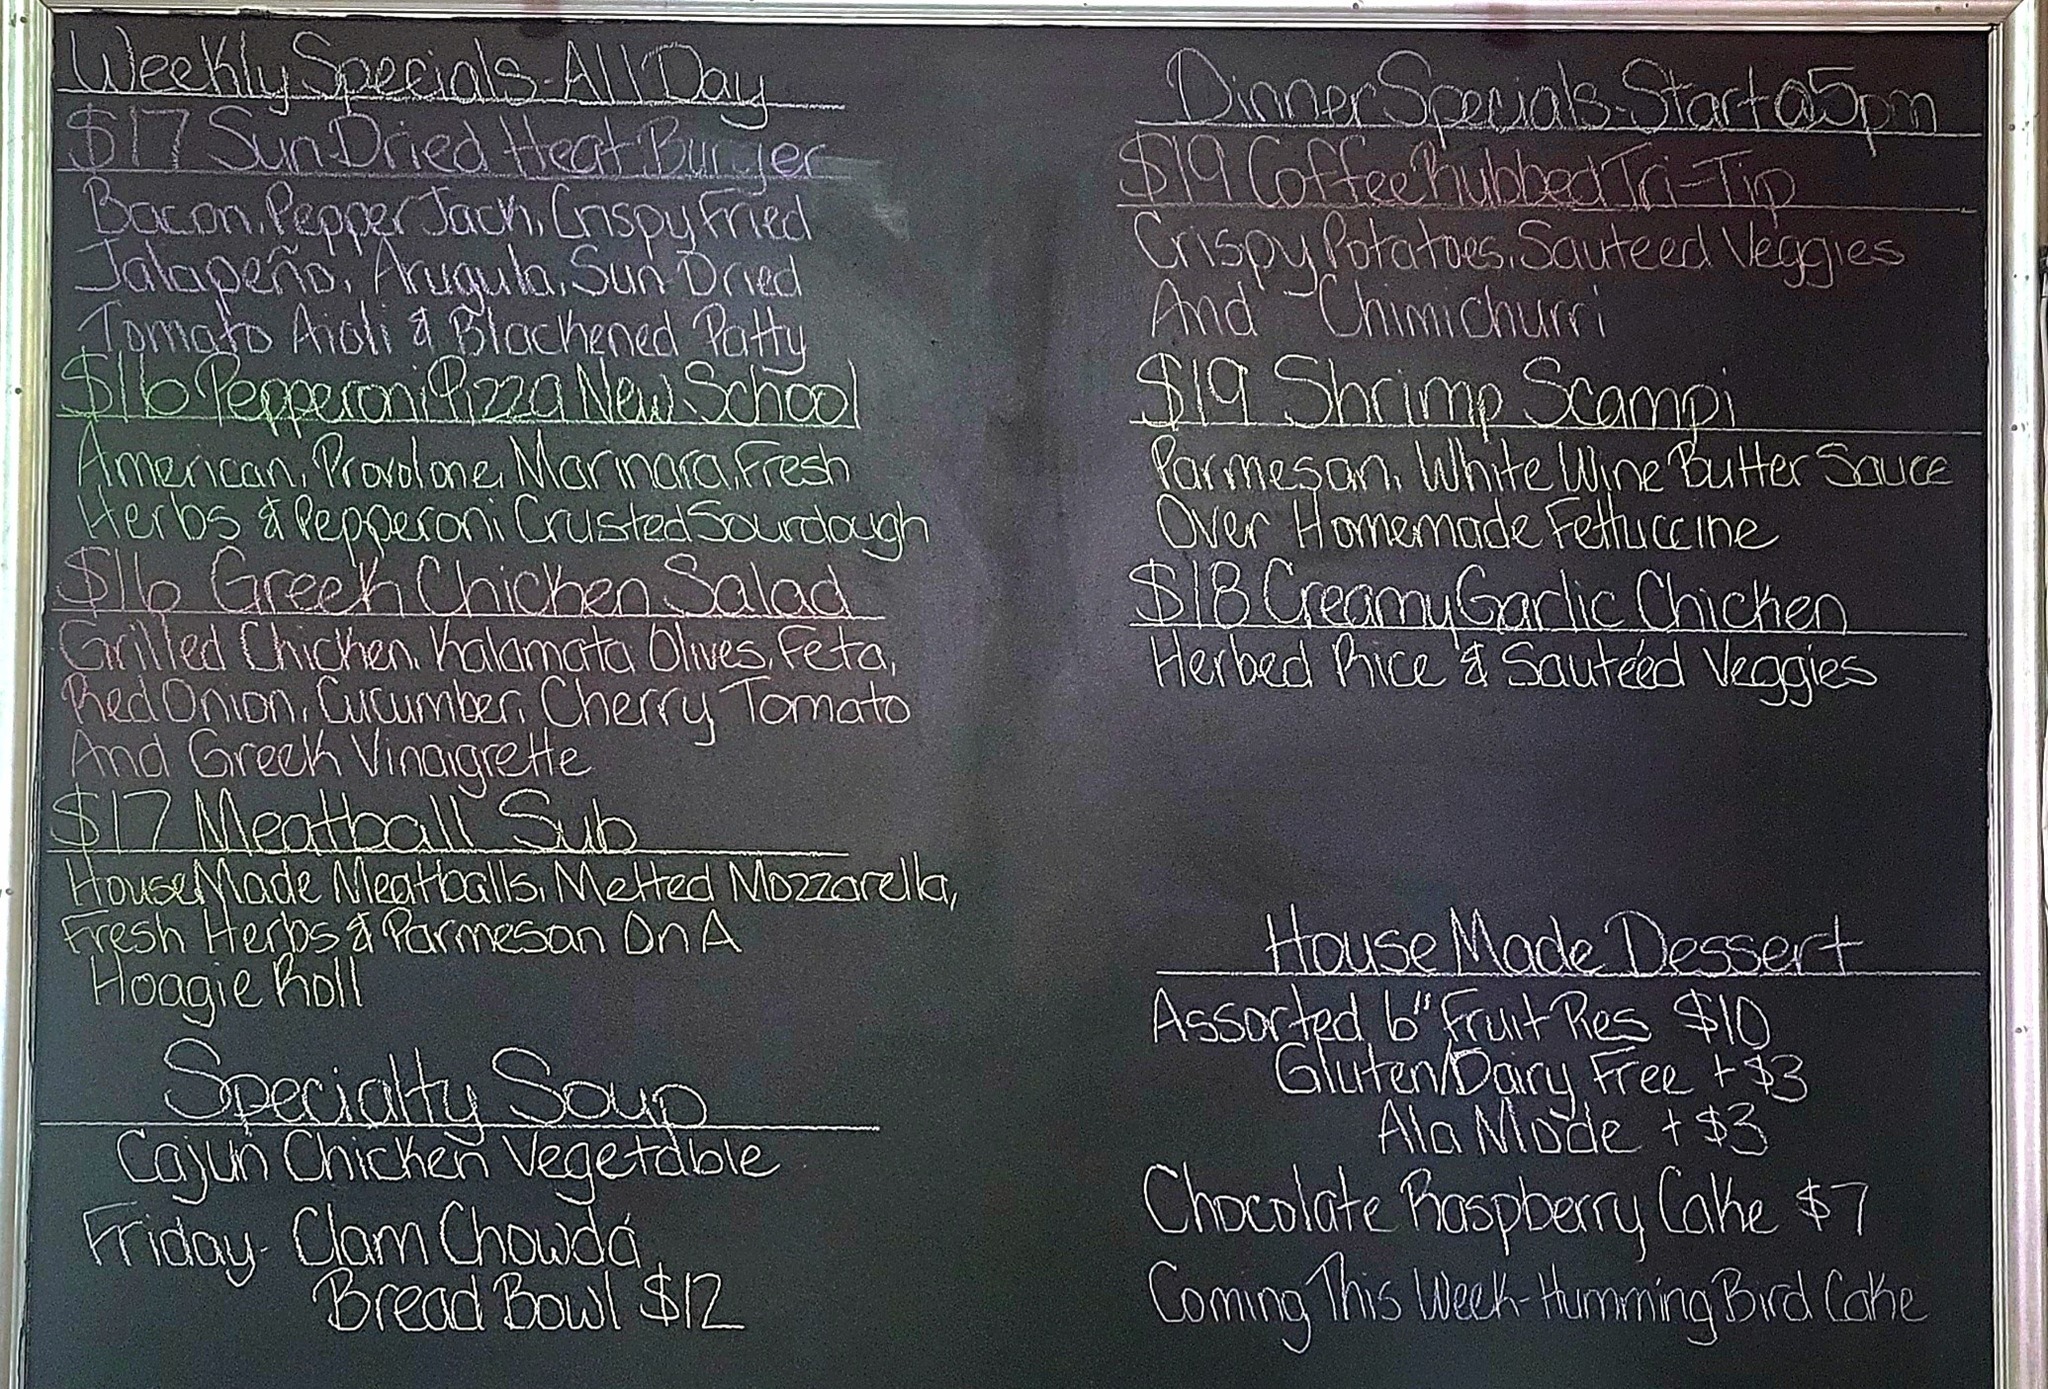 Weekly Specials-All Day
$17 Sun Dried Heat Burger
Bacon, Pepper Jack, Crispy Fried
Jalapeño, Arugula, Sun Dried
Tomato Aioli & Blackened Patty
$16 Pepperoni Pizza New School
American, Provolone, Marinara, Fresh
Herbs & Pepperoni Crusted Sourdough
$16 Greek Chicken Salad
Grilled Chicken, Kalamata Olives, Feta,
Red Onion, Cucumber, Cherry Tomato
And Greek Vinaigrette
$17 Meatball Sub
House Made Meatballs, Melted Mozzarella,
Fresh Herbs & Parmesan On A
Hoagie Roll
Specialty Soup
Cajun Chicken Vegetable
Friday- Clam Chowda
Bread Bowl $12
Dinner Specials-Start @5pm
$19 Coffee Rubbed Tri-Tip
Crispy Potatoes, Sauteed Veggies
And Chimichurri
$19 Shrimp Scampi
Parmesan, White Wine Butter Sauce
Over Homemade Fettuccine
$18 Creamy Garlic Chicken
Herbed Rice & Sautéed Veggies
House Made Dessert
Assorted 6" Fruit Pies $10
Gluten/Dairy Free +$3
Ala Mode +$3
Chocolate Raspberry Cake $7
Coming This Week-Humming Bird Cake